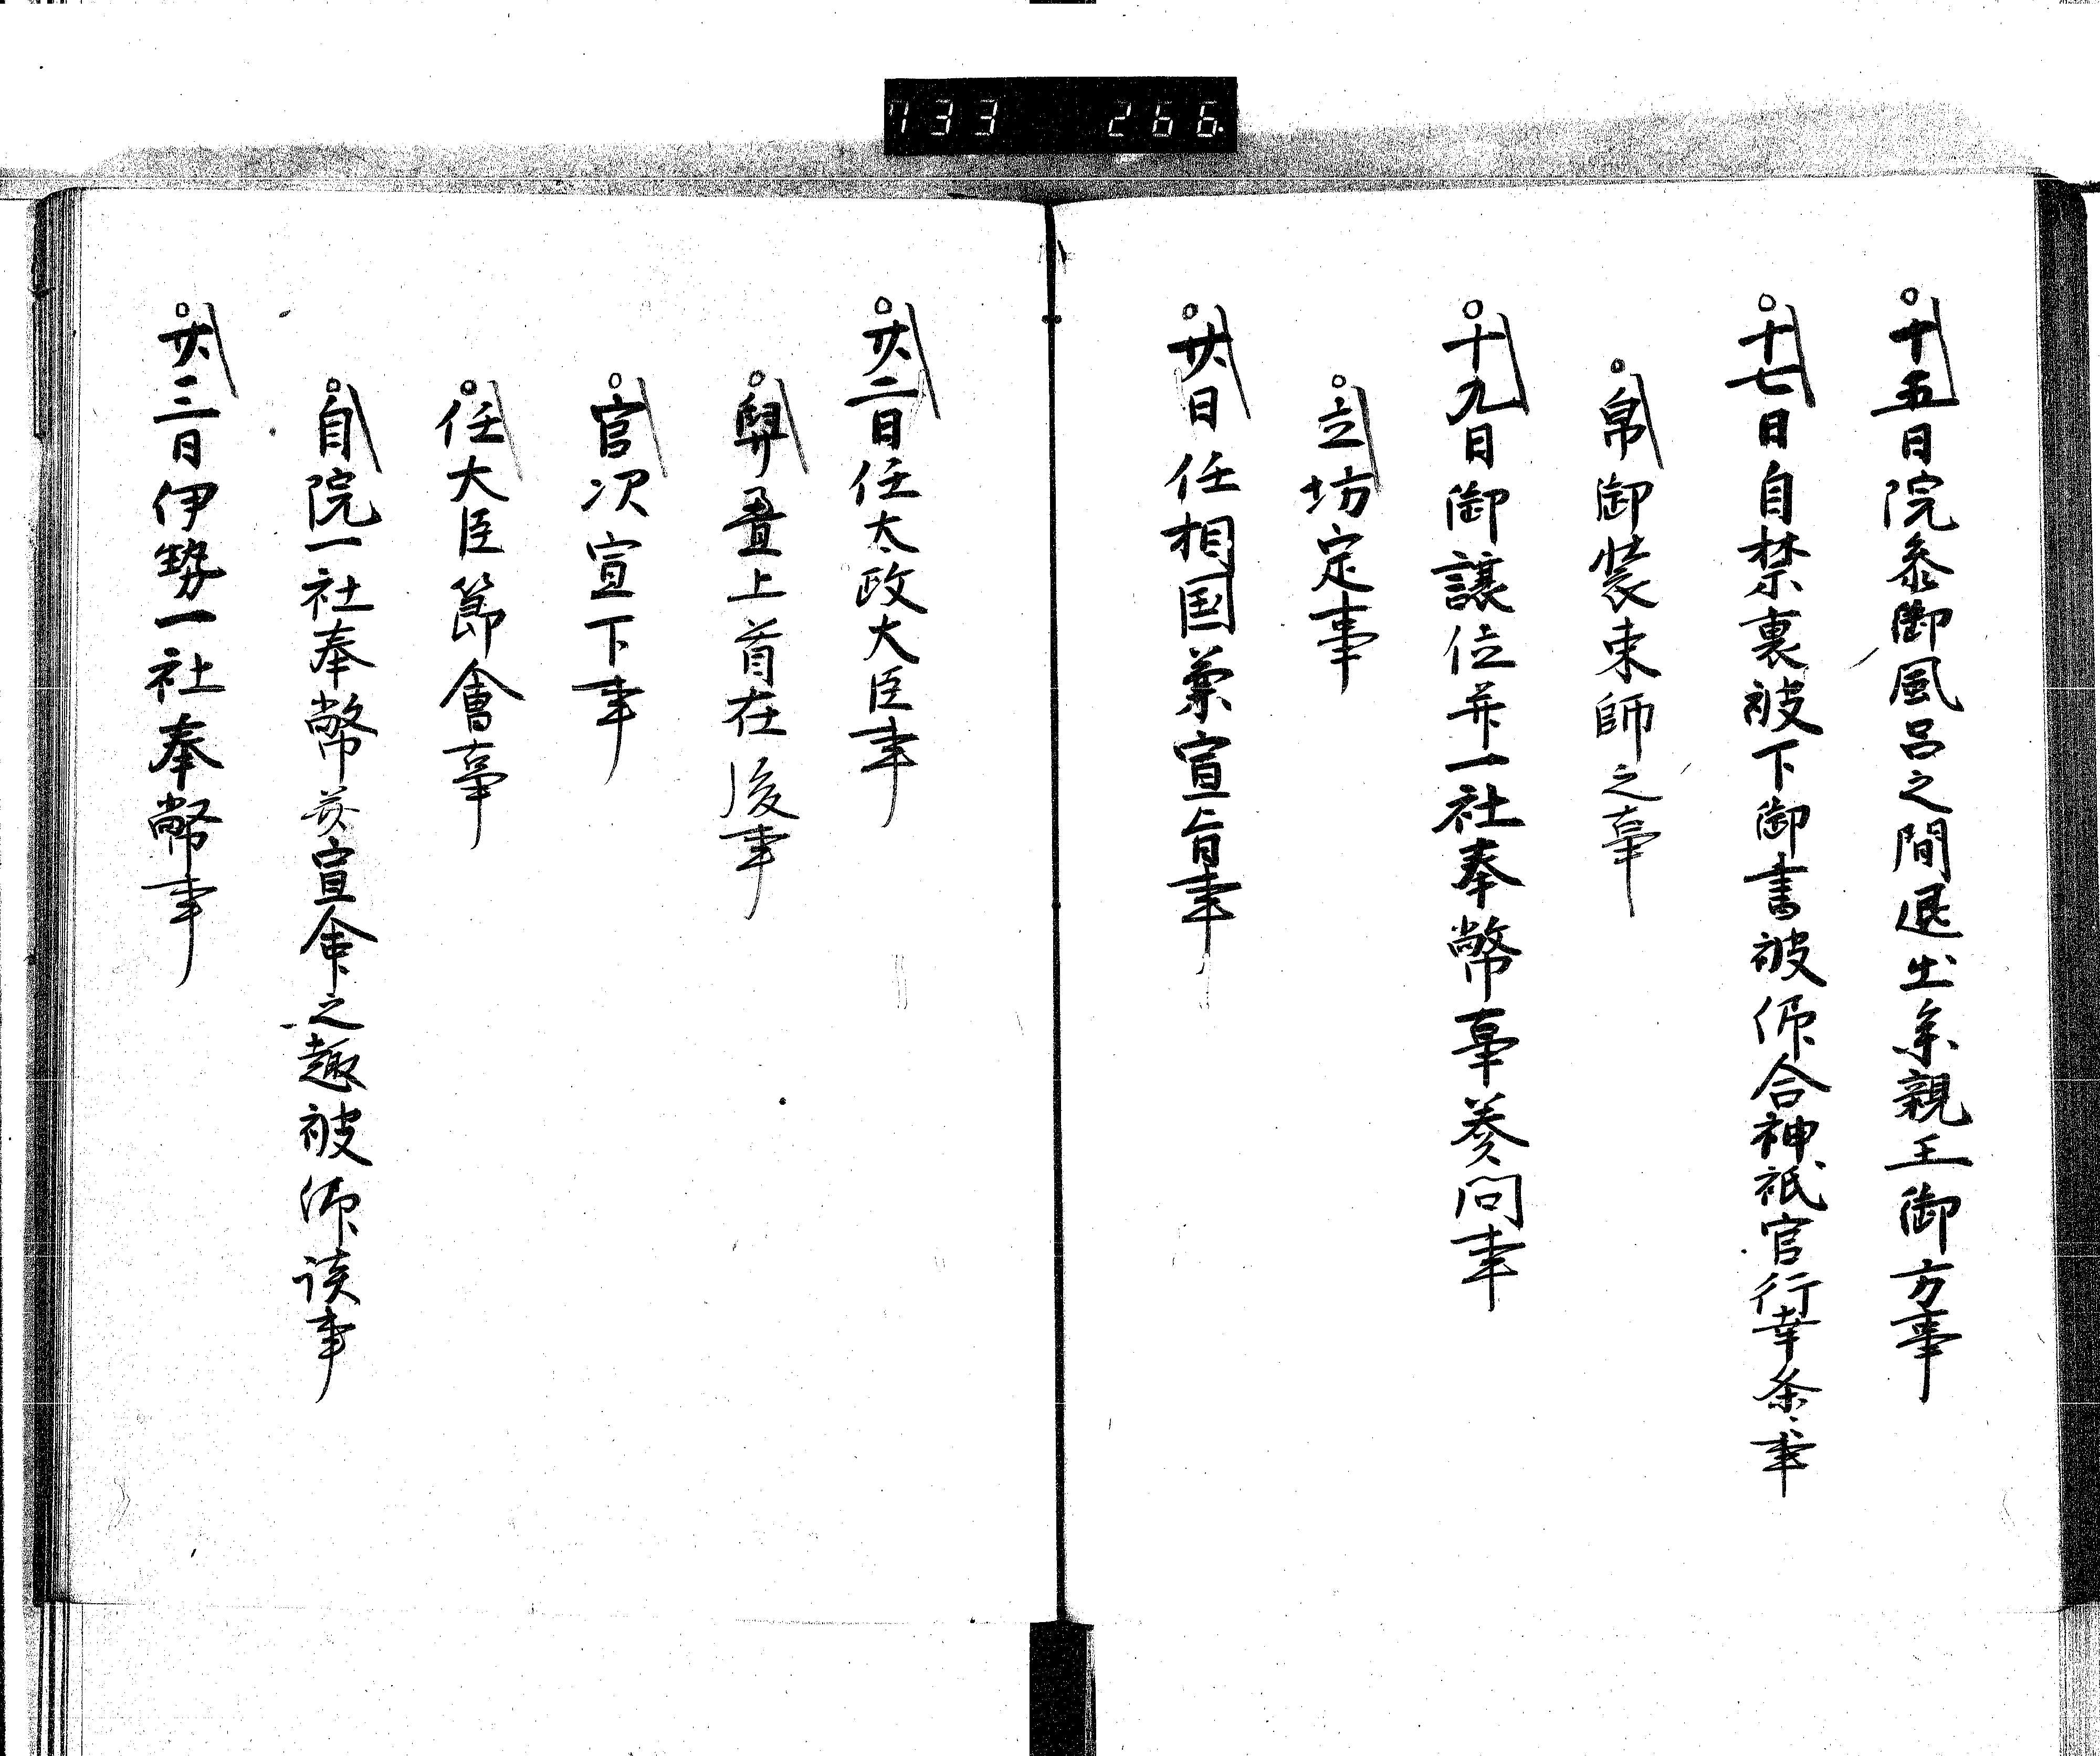 733 266
十五日院参御風呂之間退出參親王御方事
十七日自禁裏被下御書被仰合神祇官行幸条々事
帛御装束師之事
十九日御譲位并一社奉幣事奏問事
立坊定事
廿日任相国兼宣旨事
廿二日任太政大臣事
上首在後事
官次宣下事
任大臣節會事
自院一社奉幣并宣命之趣被仰談事
廿三日伊勢一社奉幣事